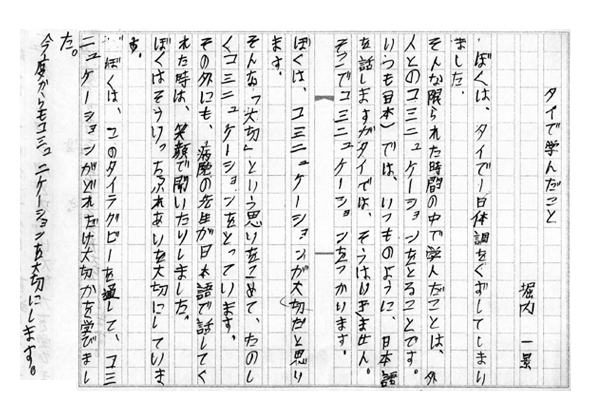 タイで学んだこと
堀内 一景
ぼくは、タイで一日体調をくずしてしまい
ました。
そんな限られた時間の中で学んだことは、外
人とのコミニュケーションをとることです。
いつも日本では、いつものように、日本語
を話しますがタイでは、そうはいきません。
そこでコミニュケーションをつかいます。
ぼくは、コミニュケーションが大切だと思い
ます。
そんな「大切」という思いをこめて、たのし
くコミニュケーションをとっています。
その外にも、病院の先生が日本語で話してく
れた時は、笑顔で聞いたりしました。
ぼくはそういったふれあいを大切にしていま
す。
ぼくは、このタイラグビーを通して、コミ
ニュケーションがどれだけ大切かを学びまし
た。
今度からもコミュニケーションを大切にします。